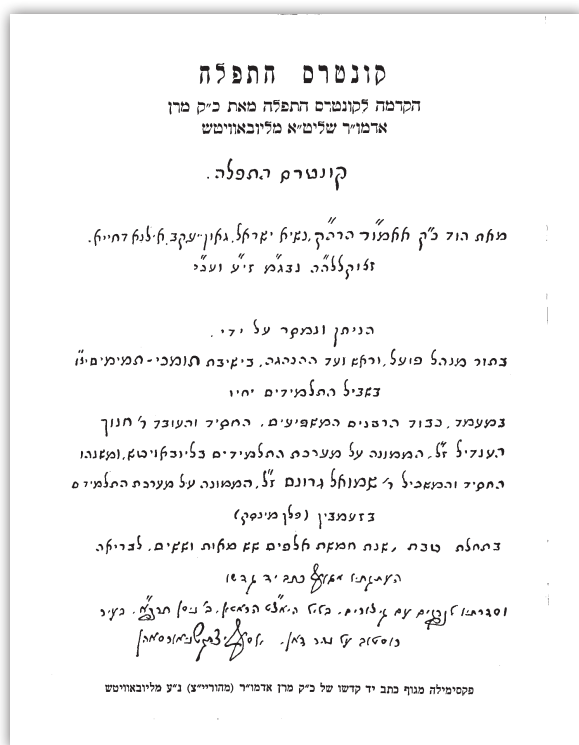 קונטרס התפלה
הקדמה לקונטרס התפלה מאת כ״ק מרן
אדמו״ר שליט״א מליובאוויטש
קונטרס התפלה.
מאת הוד כ״ק אאמו״ר הרה״ק, נשיא ישראל, גאון יעקב, אילנא דחייא.
זצוקללה״ה נבג״מ זי״ע ועכ״י
הניתן ונמסר על ידי.
בתור מנהל פועל, וראש ועד ההנהגה, בישיבת תומכי-תמימים
בשביל התלמידים יחיו
במעמד, כבוד הרבנים המשפיעים, החסיד והעובד ר׳ חנוך
הענדיל ז״ל, הממונה על מערכת התלמידים בליובאויטש, ומשנהו
החסיד והמשכיל ר׳ שמואל גרונם ז״ל, הממונה על מערכת התלמידים
בזעמבין (פלך מינסק)
בתחלת טבת, שנת חמשת אלפים שש מאות וששים, לבריאה
העתקתיו מגוף כתב יד קדשו
וסדרתיו לפרקים עם קיצורים. בליל הימ״צט הרמטא, ב׳ ניסן תרפ״מ. בעיר
רוסטוב על נהר דאן.
פקסימילה מגוף כתב יד קדשו של כ״ק מרן אדמו״ר (מהוריי״צ) נ״ע מליובאוויטש